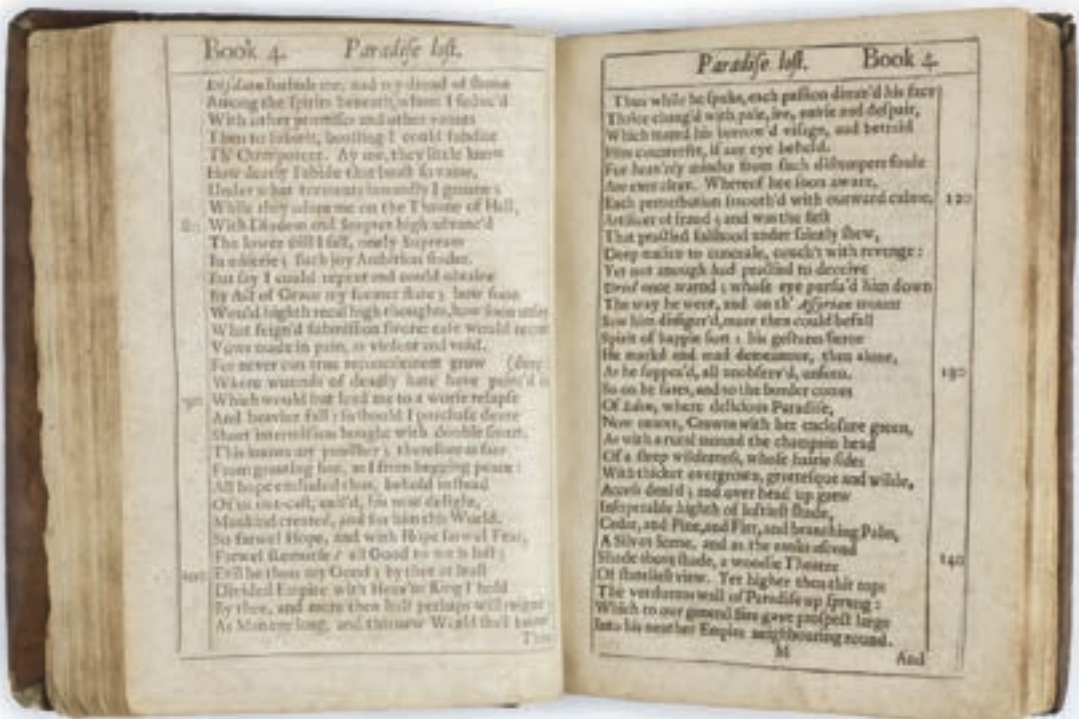 Book 4. Paradiſe loſt.
Diſdain forbids me, and my dread of ſhame
Among the ſpirits beneath, whom I ſeduc'd
With other promiſes and other vaunts
Then to ſubmit, boaſting I could ſubdue
Th' Omnipotent. Ay me, they little know
How dearly I abide that boaſt ſo vaine,
Under what torments inwardly I groane;
While they adore me on the Throne of Hell,
80 With Diadem and Scepter high advanc'd
The lower ſtill I fall, onely Supream
In miſerie; ſuch joy Ambition findes.
But ſay I could repent and could obtaine
By Act of Grace my former ſtate; how ſoon
Would highth recal high thoughts, how ſoon unſay
What feign'd ſubmiſſion ſwore: eaſe would recant
Vows made in pain, as violent and void.
For never can true reconcilement grow (deep:
Where wounds of deadly hate have peirc'd ſo
90 Which would but lead me to a worſe relapſe
And heavier fall: ſo ſhould I purchaſe deare
Short intermiſſion bought with double ſmart.
This knows my puniſher; therefore as farr
From granting hee, as I from begging peace:
All hope excluded thus, behold in ſtead
Of us out-caſt, exil'd, his new delight,
Mankind created, and for him this World.
So farwel Hope, and with Hope farwel Fear,
Farwel Remorſe: all Good to me is loſt;
100 Evil be thou my Good; by thee at leaſt
Divided Empire with Heav'ns King I hold
By thee, and more then half perhaps will reigne
As Man ere long, and this new World ſhall know
Thus
Paradiſe loſt. Book 4.
Thus while he ſpake, each paſſion dimm'd his face
Thrice chang'd with pale, ire, envie and deſpair,
Which marrd his borrow'd viſage, and betraid
Him counterfet, if any eye beheld.
For heav'nly mindes from ſuch diſtempers foule
Are ever clear. Whereof hee ſoon aware,
Each perturbation ſmooth'd with outward calme, 120
Artificer of fraud; and was the firſt
That practiſd falſhood under ſaintly ſhew,
Deep malice to conceale, couch't with revenge:
Yet not anough had practiſd to deceive
Uriel once warnd; whoſe eye purſu'd him down
The way he went, and on th' Aſſyrian mount
Saw him disfigur'd, more then could befall
Spirit of happie ſort: his geſtures fierce
He markd and mad demeanour, then alone,
As he ſuppos'd, all unobſerv'd, unſeen. 130
So on he fares, and to the border comes
Of Eden, where delicious Paradiſe,
Now nearer, Crowns with her encloſure green,
As with a rural mound the champain head
Of a ſteep wilderneſs, whoſe hairie ſides
With thicket overgrown, groteſque and wilde,
Acceſs deni'd; and over head up grew
Inſuperable highth of loftieſt ſhade,
Cedar, and Pine, and Firr, and branching Palm,
A Silvan Scene, and as the ranks aſcend 140
Shade above ſhade, a woodie Theatre
Of ſtatelieſt view. Yet higher then thir tops
The verdurous wall of Paradiſe up ſprung:
Which to our general Sire gave proſpect large
Into his neather Empire neighbouring round.
M And